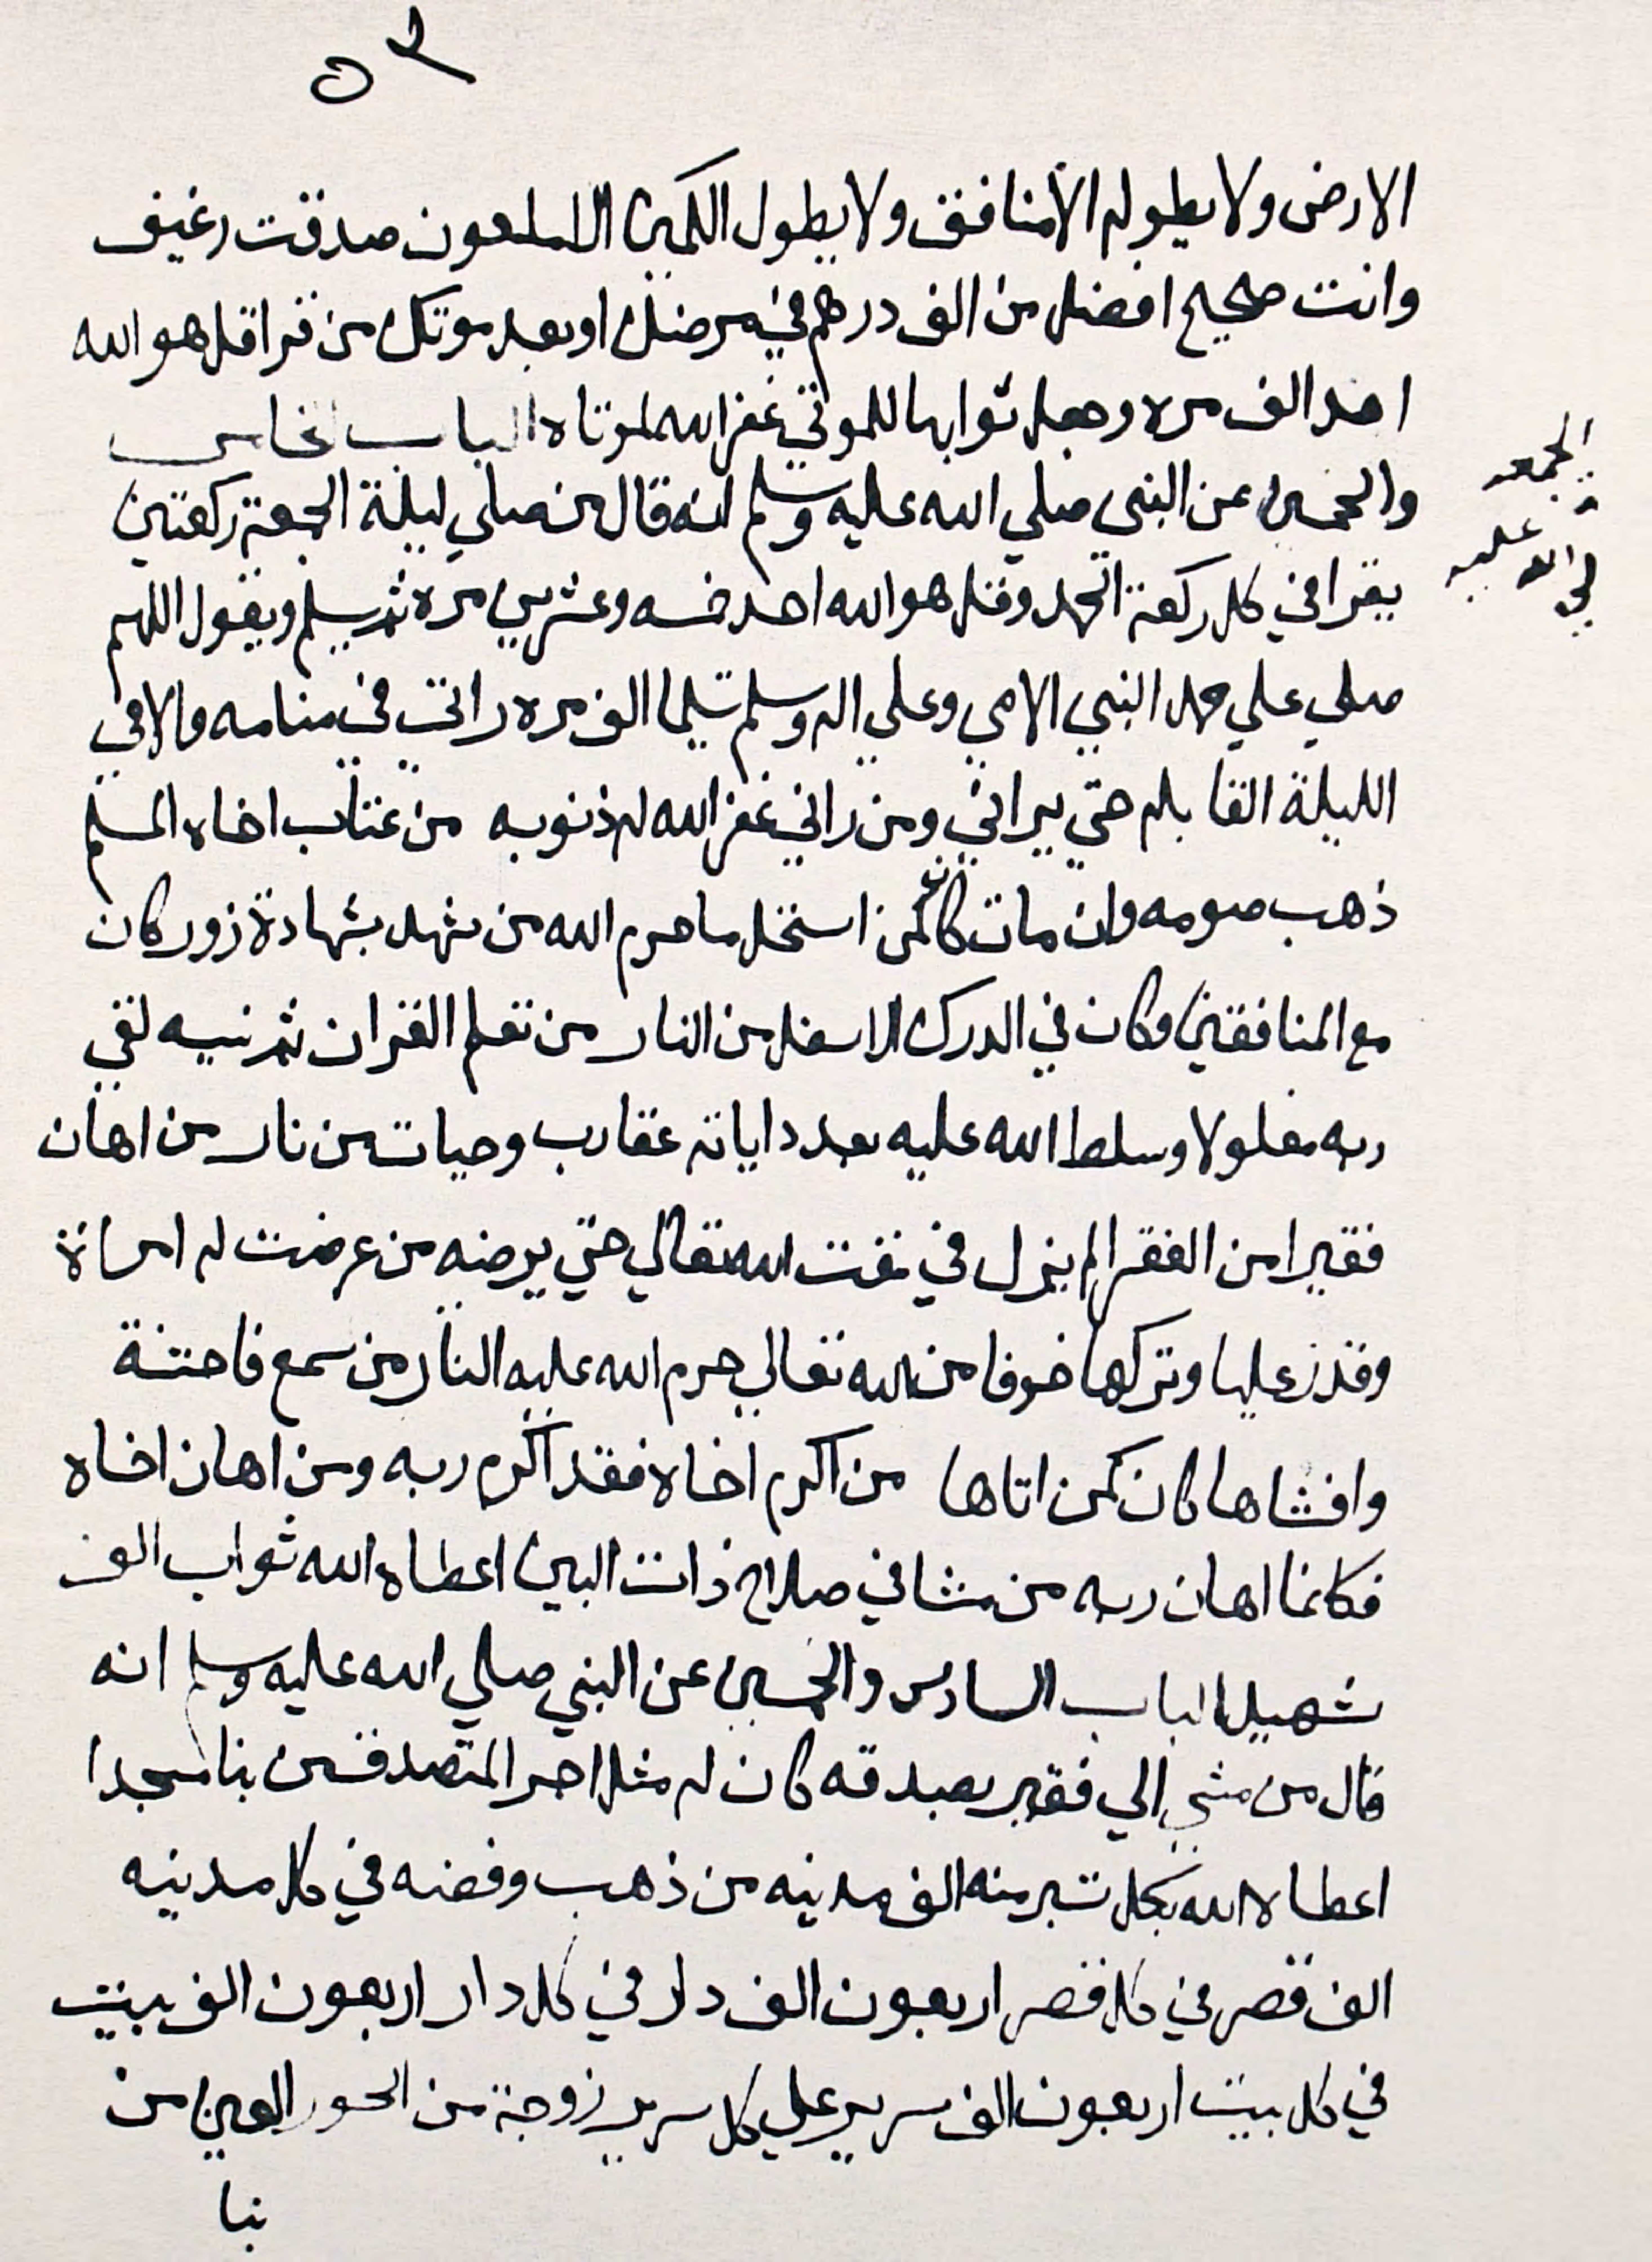 ٥٣
الارض ولا يطوله الا منافق ولا يطول الكمين الا ملعون صدقت رغيف
وانت صحيح افضل من الف درهم في مرضك او بعد موتك من قرا قل هو الله
احد الف مره وجعل ثوابها للموتي غفر الله لموتاه الباب الخامس
والخمسين عن النبي صلي الله عليه وسلم انه قال من صلي ليلة الجمعة ركعتين
يقرا في كل ركعة الحمد وقل هو الله احد خمسه وعشرين مرة ثم يسلم ويقول اللهم
صلي علي محمد النبي الامي وعلي اله وسلم تسليما الف مره راني في منامه والا في
الليلة القابله حتي يراني ومن راني غفر الله له ذنوبه من عتاب اخاه المسلم
ذهب صومه وان مات كان كمن استحل ما حرم الله من شهد بشهادة زور كان
مع المنافقين وكان في الدرك الاسفل من النار من تعلم القران ثم نسيه لقي
ربه مغلولا وسلط الله عليه بعدد اياته عقارب وحيات من نار من اهان
فقيرا من الفقرا لم ينزل في مقت الله تعالي حتي يرضه من عرضت له امراة
وقدر عليها وتركها خوفا من الله تعالي حرم الله عليه النار من سمع فاحشة
وافشاها كان كمن اتاها من اكرم اخاه فقد اكرم ربه ومن اهان اخاه
فكانما اهان ربه من مشا في صلاح ذات البين اعطاه الله ثواب الف
شهيد الباب السادس والخمسين عن النبي صلي الله عليه وسلم انه
قال من مشي الي فقير بصدقه كان له مثل اجر المتصدق من بنا مسجدا
اعطاه الله بكل شبر منه الف مدينه من ذهب وفضه في كل مدينه
الف قصر في كل قصر اربعون الف دار في كل دار اربعون الف بيت
في كل بيت اربعون الف سرير علي كل سرير زوجة من الحور العين من
بنا
الجمعه
لي الله عليه